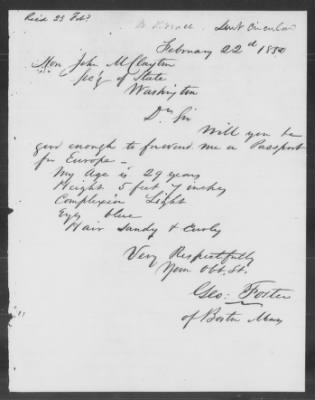 Recd 23 Feby
Sent Circular
February 22d 1850
Hon John M Clayton
Sec'y of State
Washington
Dr Sir
Will you be
good enough to forward me a Passport
for Europe -
My Age is 29 years
Height 5 feet 7 inches
Complexion Light
Eyes blue
Hair Sandy & Curley
Very Respectfully
Your Obt. St.
Geo: Foster
of Boston Mass